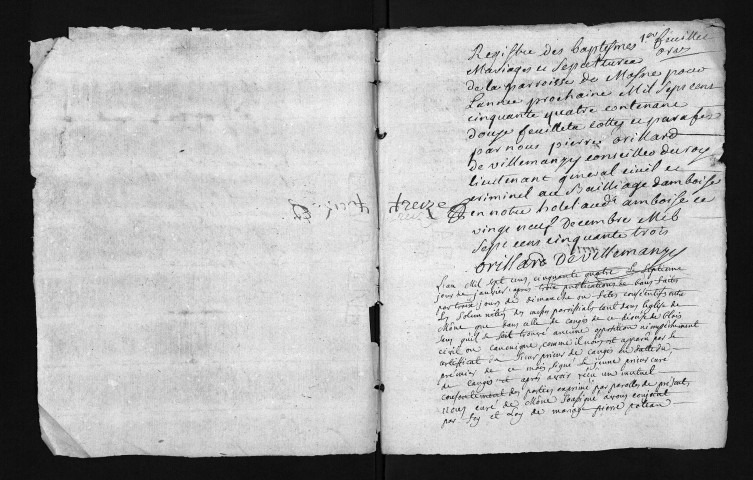 1er feuillet
Registre des baptesmes
Mariages et Sepultures
de la parroisse de Mosne pour
Lannée prochaine Mil sept cens
cinquante quatre contenant
douze feuillets cottés et parafés
par nous pierre orillard
de villemanzy conseiller du roy
lieutenant general civil et
criminel au Bailliage damboise
en notre hotel audit amboise ce
vingt neuf Decembre Mil
sept cens cinquante trois
orillard De villemanzy
treize
Lan Mil sept cens cinquante quatre le septieme
jour de janvier après trois publications de bans faites
par trois jours de dimanche ou fetes consecutifs entre
les solemnités des messes parroissiales tant dans leglise de
Mône que dans celle de cangé de ce diocese de blois
sans quil se soit trouvé aucune opposition ni empechement
civil ou canonique, comme il nous est apparu par le
certificat du sieur prieur de cangé en datte du
premier de ce mois signé le jeune prieur curé
de cangé et après avoir reçu un mutuel
consentement des parties exprimé par parolles de present
Nous curé de Mône soussigné avons conjoint
par foy et Loy de mariage pierre